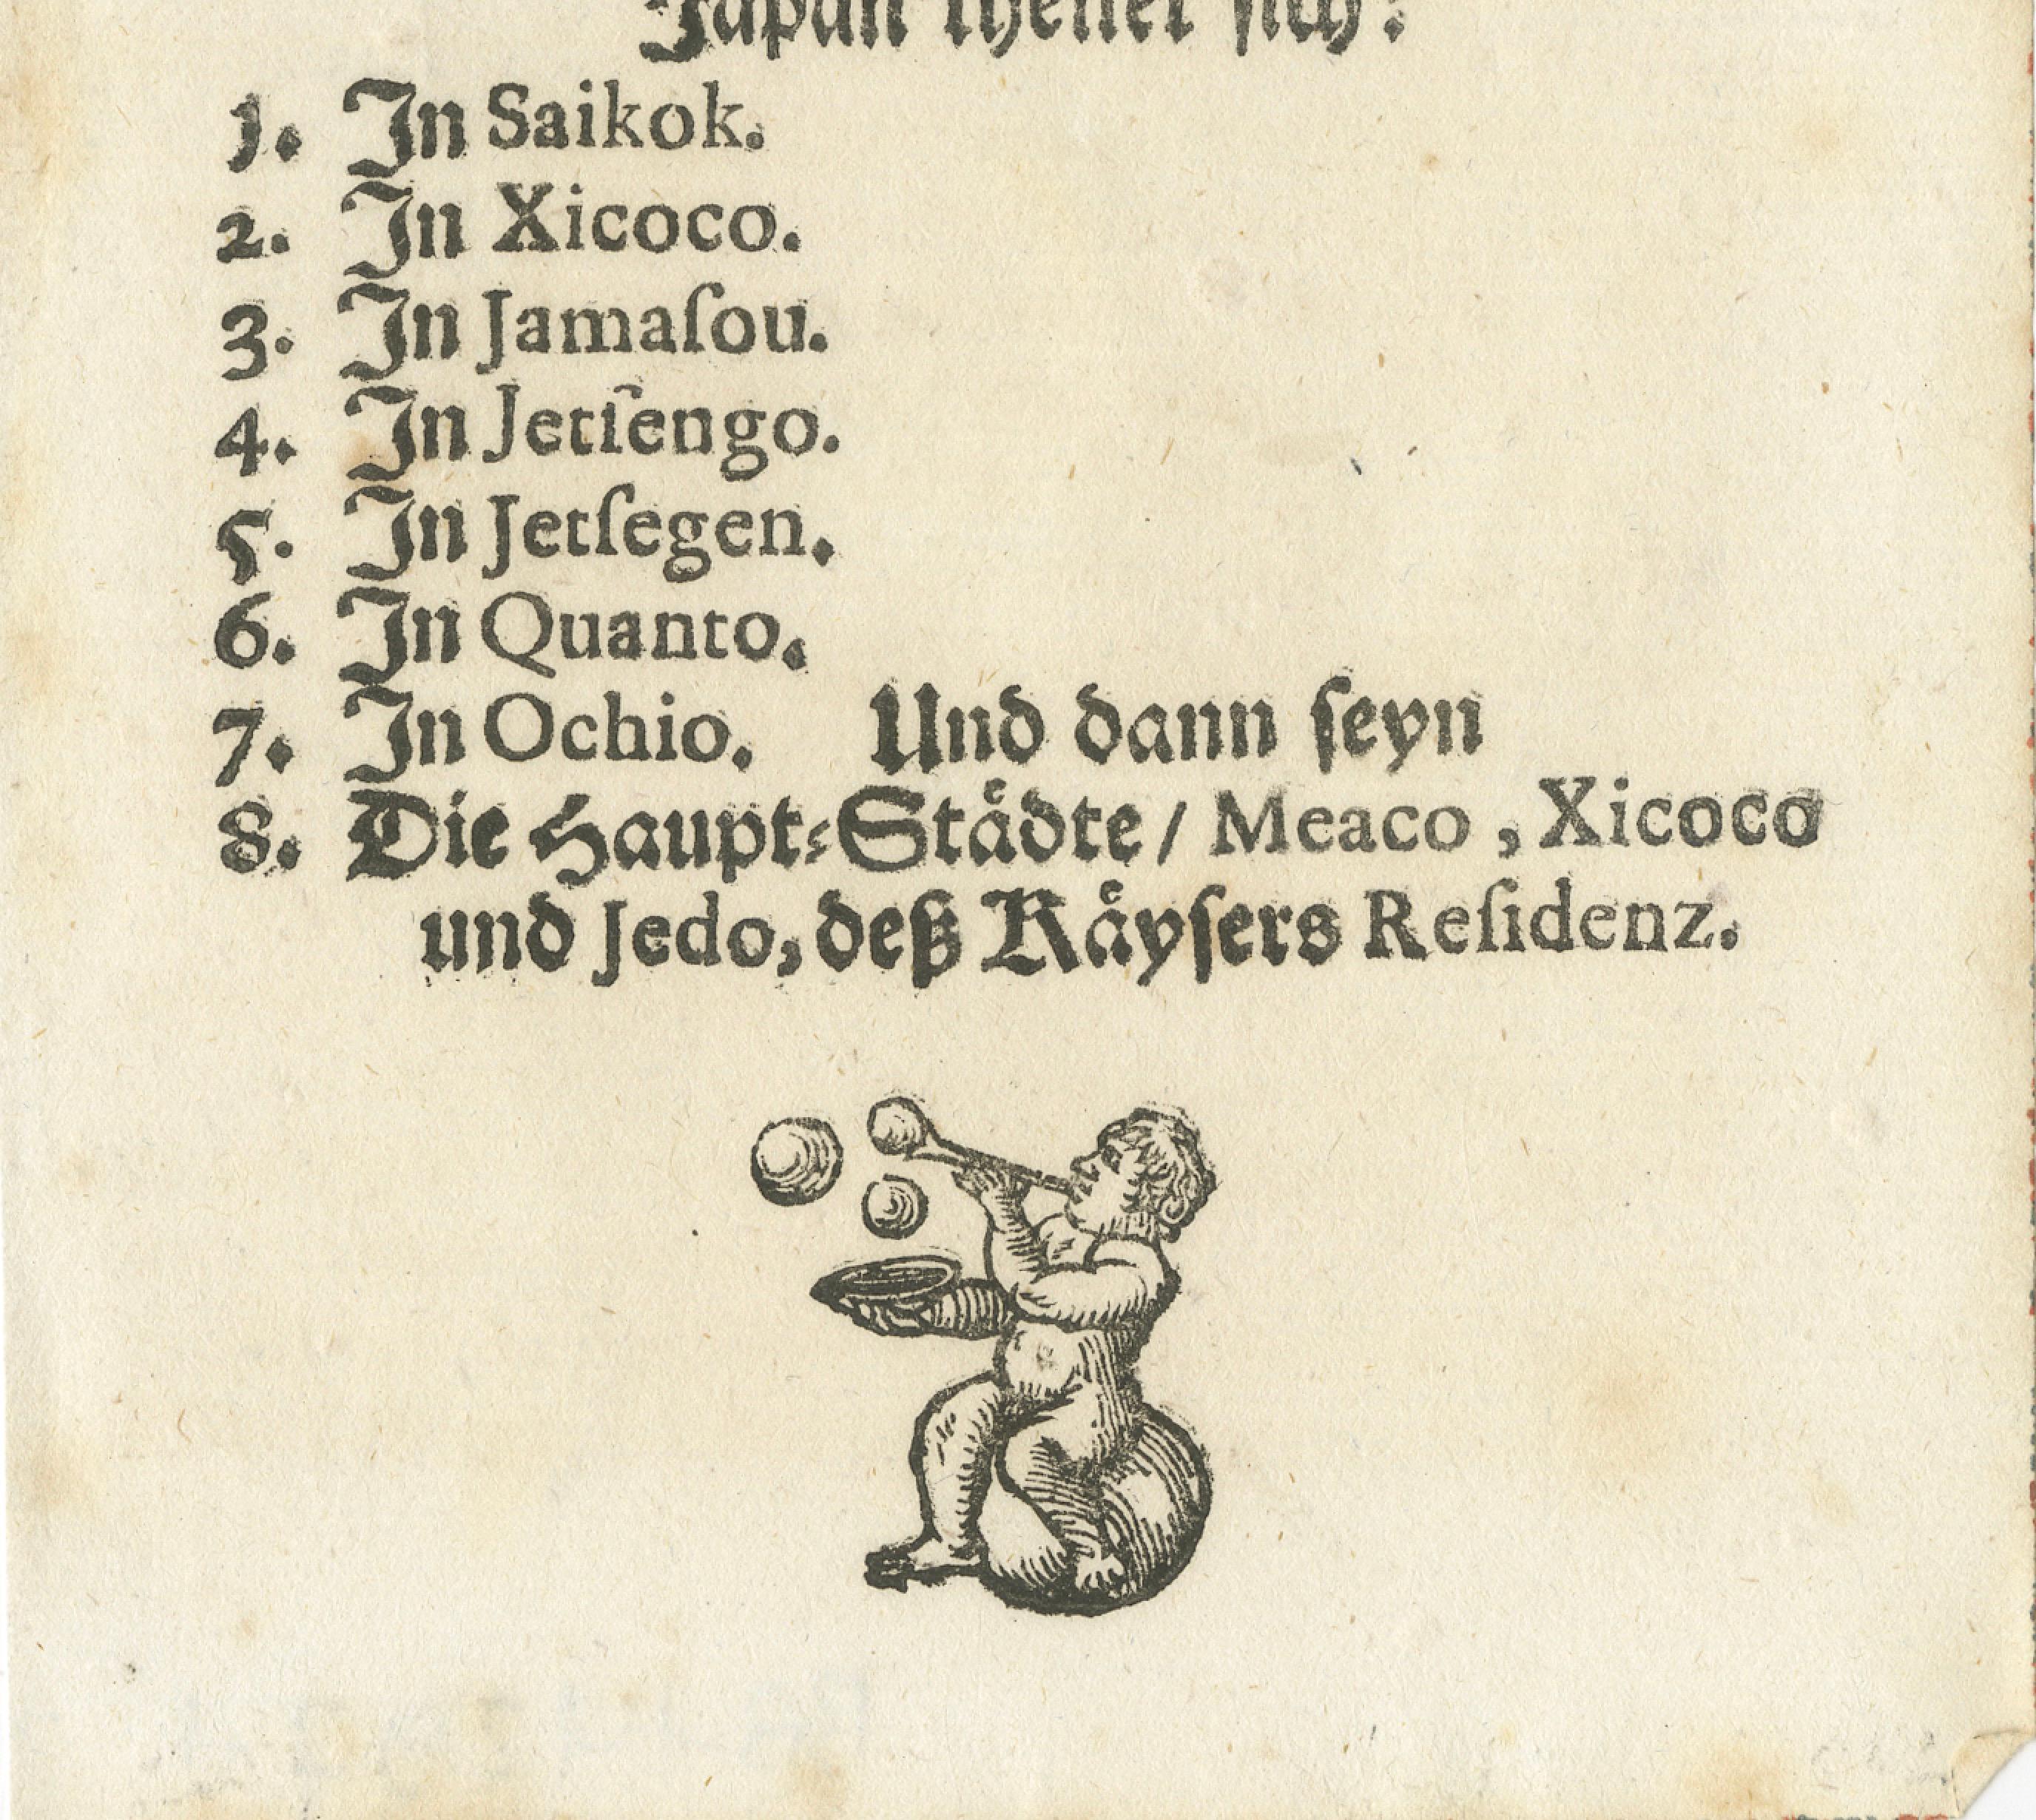 Japan theilet sich:
1. In Saikok.
2. In Xicoco.
3. In Jamaſou.
4. In Jetſengo.
5. In Jetſegen.
6. In Quanto.
7. In Ochio. Und dann ſeyn
8. Die Haupt⸗Staͤdte / Meaco, Xicoco
und Jedo, deß Kaͤyſers Reſidenz.